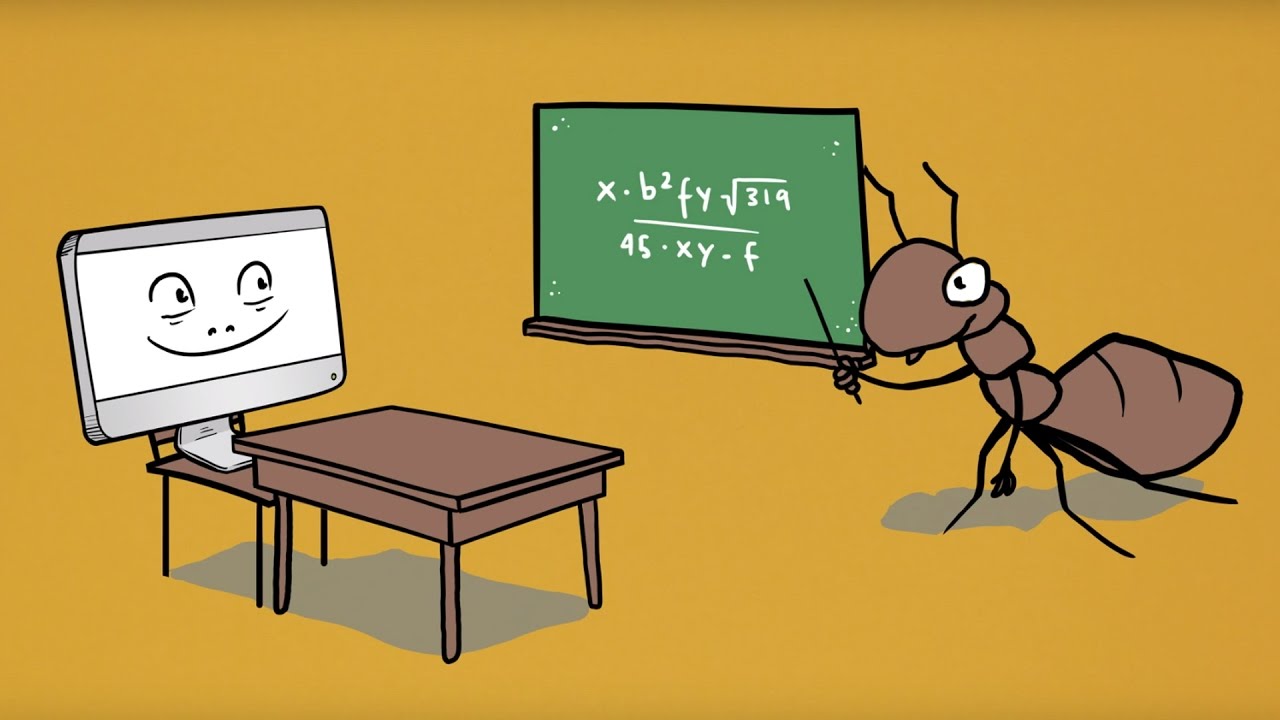 x · b² fy √319
45 · xy - f